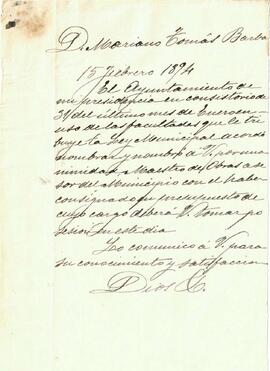 D. Mariano Tomás Barba
15 Febrero 1894
El Ayuntamiento de
mi presidencia en consistorio de
31 del último mes de Enero en
uso de las facultades que le tri
buye la Ley Municipal acordó
nombrar y nombró a V. por una
nimidad Maestro de Obras ase
sor del Municipio con el haber
consignado en presupuesto de
cuyo cargo deberá V. tomar po
sesión en este dia
Lo comunico á V. para
su conocimiento y satisfacción
Dios &.